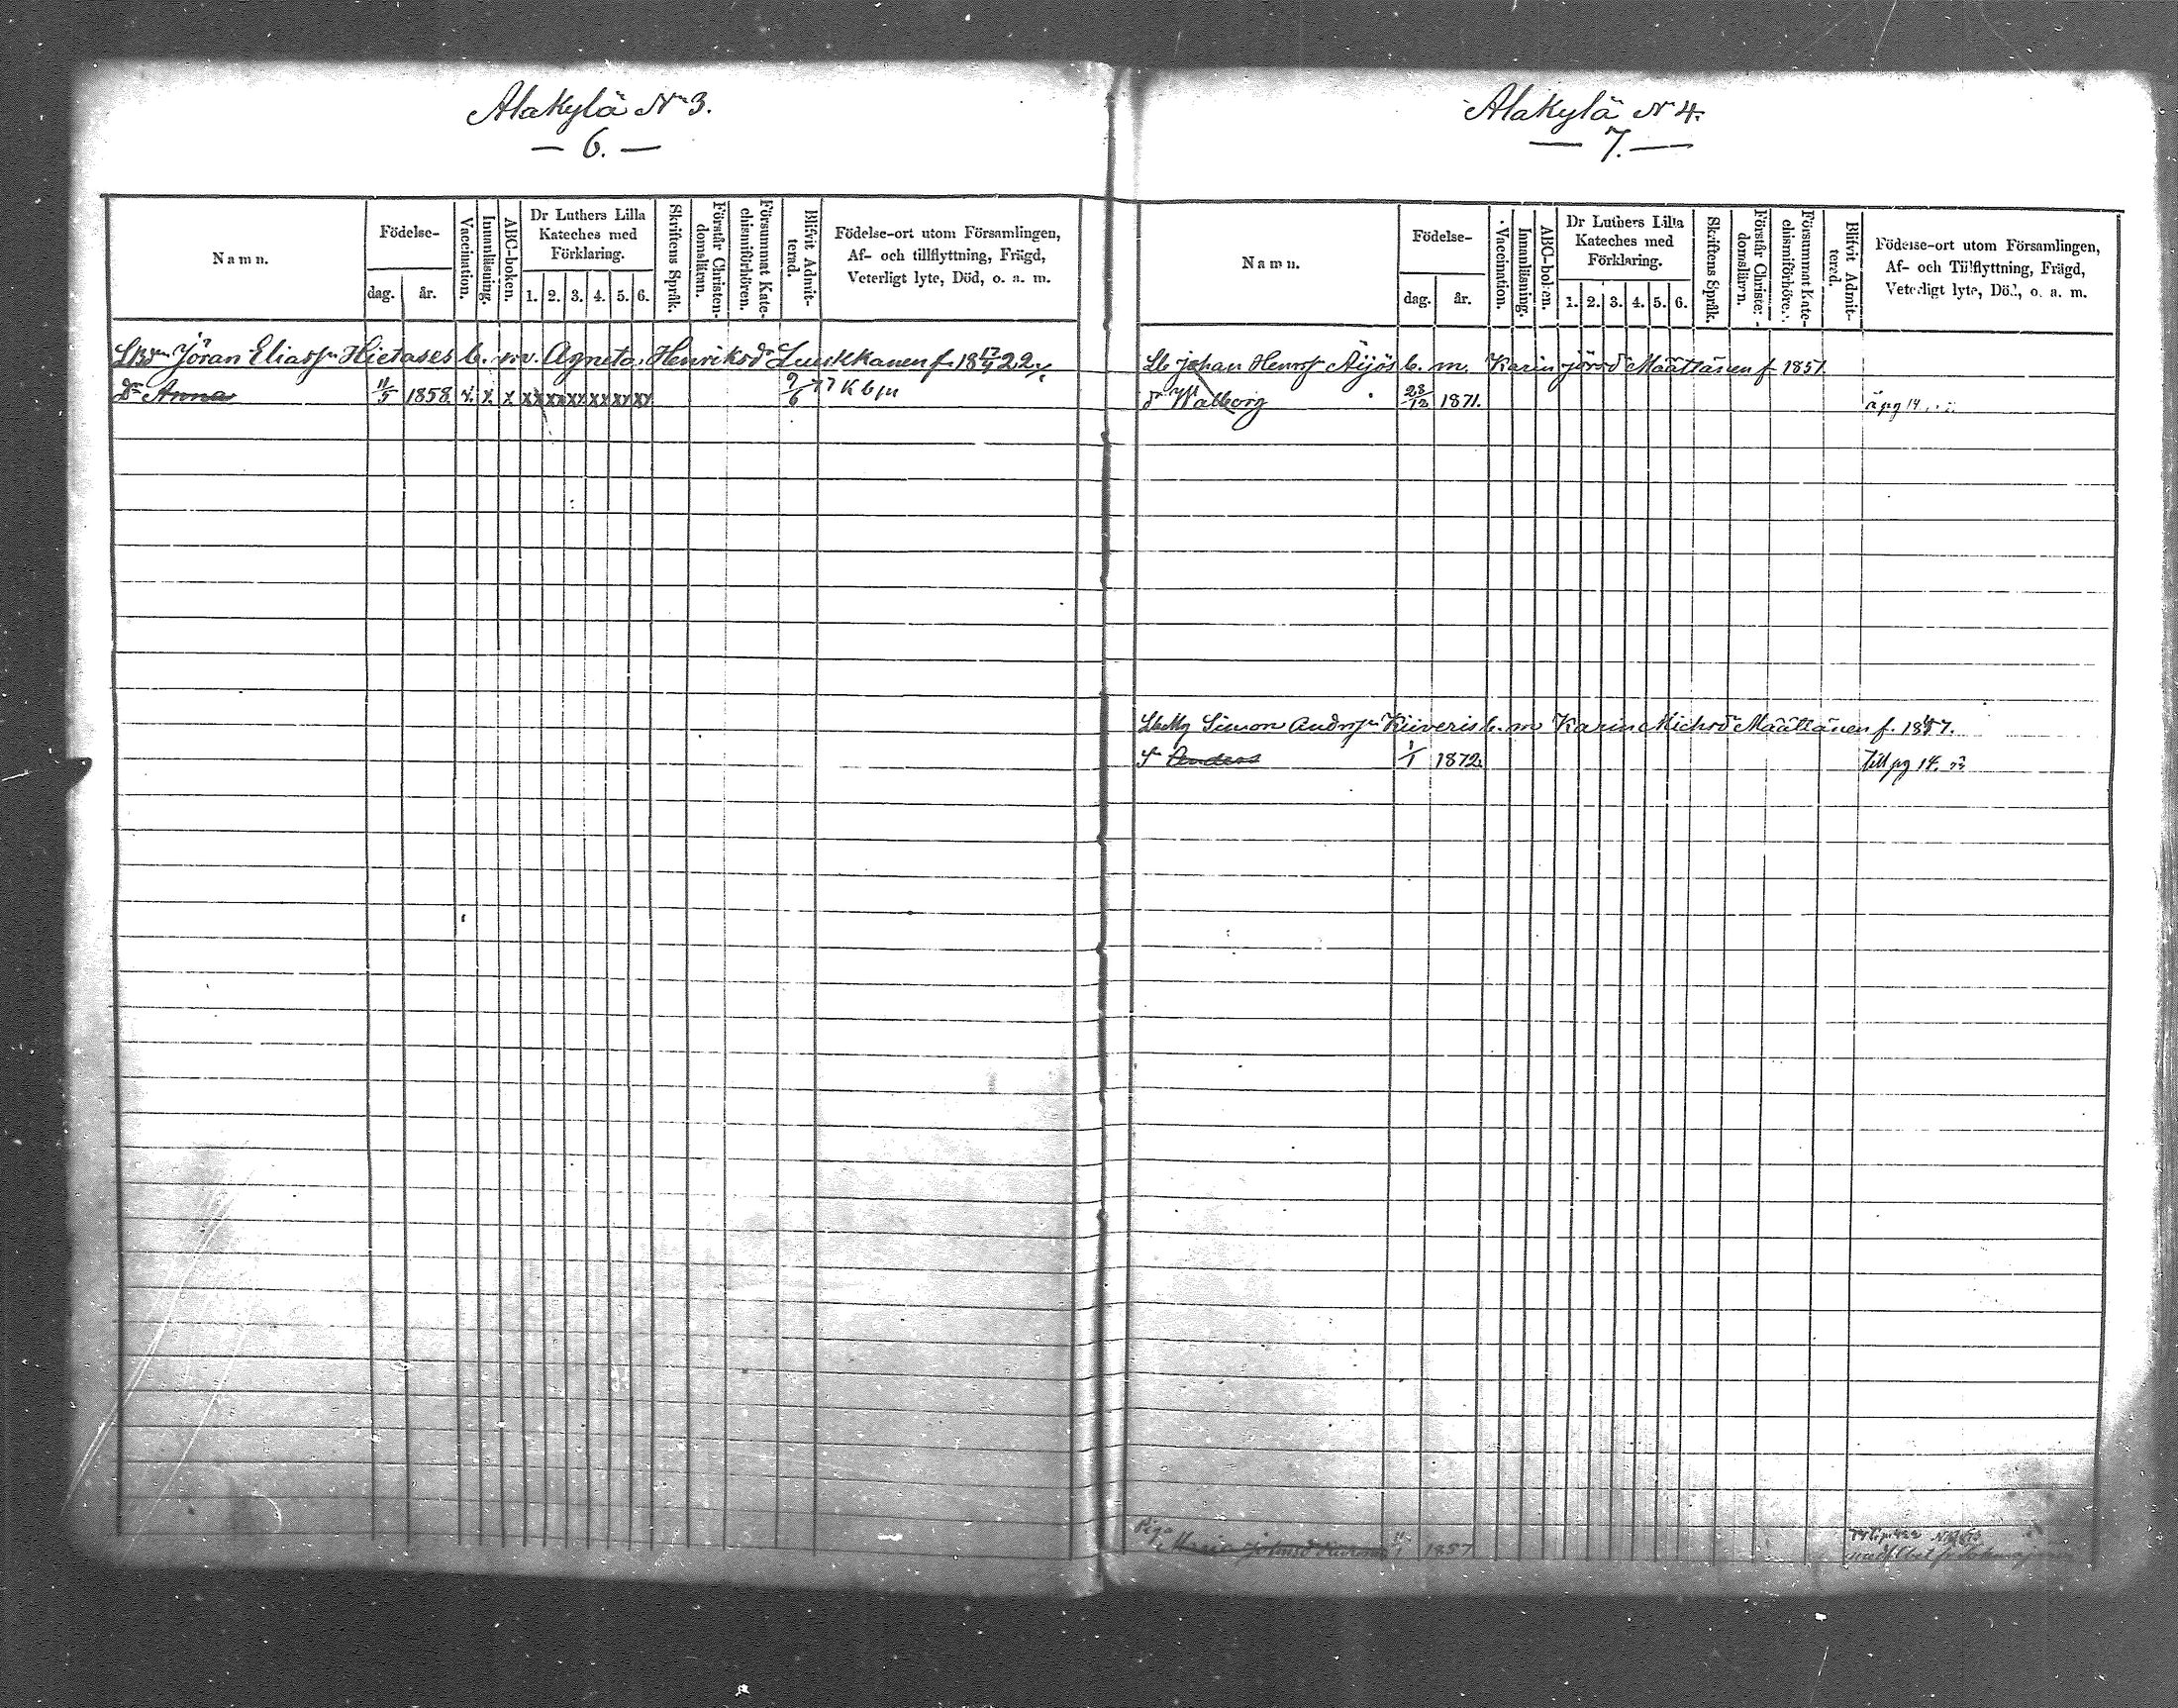 Alakylä N 3.
— 6. —
Namn.
Födelse-
dag.
år.
Vaccination.
Innanläsning.
ABC-boken.
Dr Luthers Lilla
Kateches med
Förklaring.
1. 2. 3. 4. 5. 6.
Skriftens Språk.
Förstår Christen-
domsläran.
Försummat Kate-
chismiförhören.
Blifvit Admit-
terad.
Födelse-ort utom Församlingen,
Af- och tillflyttning, Frägd,
Veterligt lyte, Död, o. a. m.
Jöran Eliass Hietases b. m. Agneta Henriksdr Luukkanen f. 18 17/4 22
Dr Anna 11/5 1858 x x x xx xx xx xx xx xx 9/6 77 K b ju
Alakylä N 4.
— 7. —
Namn.
Födelse-
dag.
år.
Vaccination.
Innanläsning.
ABC-boken.
Dr Luthers Lilla
Kateches med
Förklaring.
1. 2. 3. 4. 5. 6.
Skriftens Språk.
Förstår Christen-
domsläran.
Försummat Kate-
chismiförhören.
Blifvit Admit-
terad.
Födelse-ort utom Församlingen,
Af- och Tillflyttning, Frägd,
Veterligt lyte, Död, o. a. m.
Lb Johan Henrss Äijös b. m. Karin Jörsdr Määttänen f 1851
dr Walborg 28/12 1871. å pg 14
Simon Andrss Kiiveris b. m Karin Michsdr Määttänen f. 1847.
S Anders 1/1 1872 till pg 14.
Piga
Maria Johnsd 11/1 1857